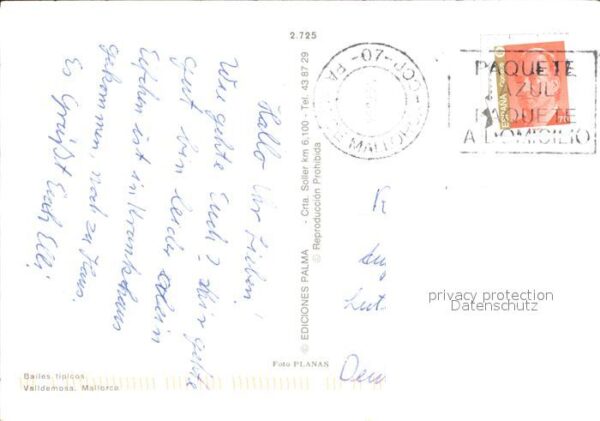 2.725
Hallo Ihr Lieben!
Wie gehts Euch? Mir gehts
gut bin leider allein
ist in Krankenhaus
gekommen, noch zu Haus.
Es Grüßt Euch Elli
© EDICIONES PALMA - Crta. Soller km 6,100 - Tel. 43 87 29
© Reproducción Prohibida
Foto PLANAS
Bailes típicos
Valldemosa, Mallorca
DE MALLOR
ESPAÑA
PAQUETE
AZUL
PAQUETE
A DOMICILIO
privacy protection
Datenschutz